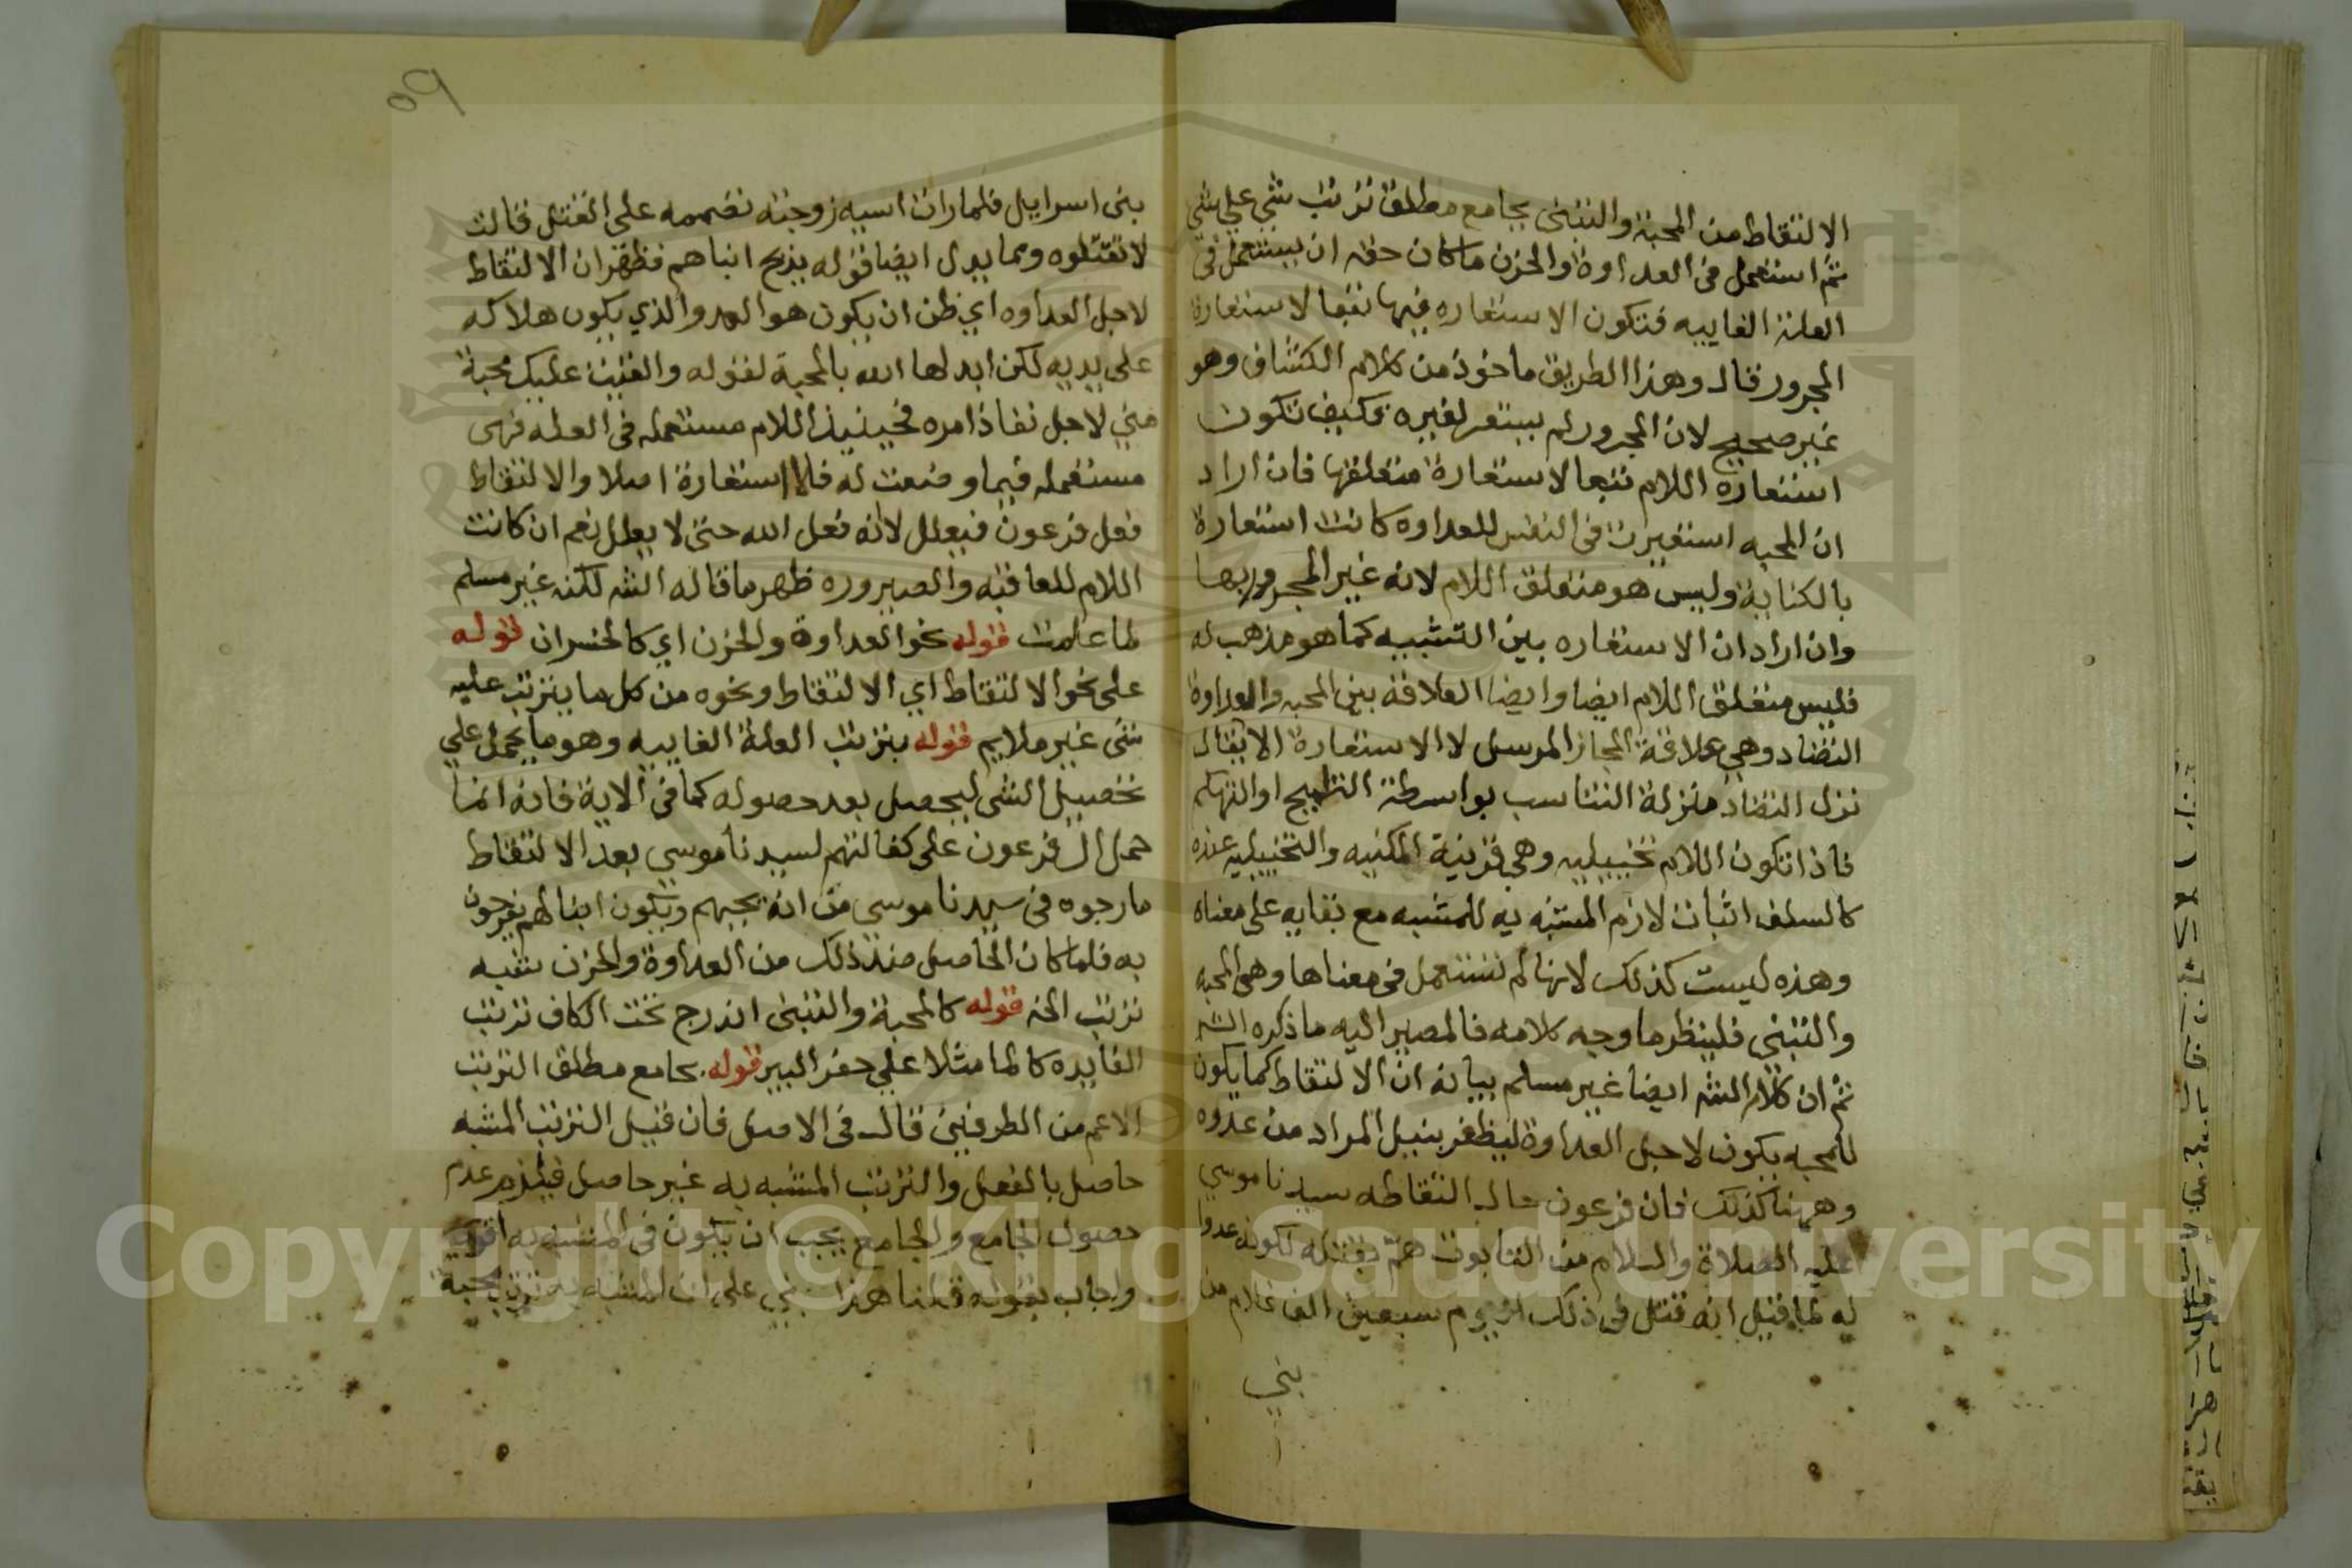 الالتقاط من المحبة والتبني بجامع مطلق ترتب شي علي شي
ثم استعمل في العداوة والحزن ما كان حقه ان يستعمل في
العلة الغاييه فتكون الاستعاره فيها تبعا لاستعارة
المجرور قال وهذا الطريق ماخوذ من كلام الكشاف وهو
غير صحيح لان المجرور لم يستعر لغيره فكيف تكون
استعارة اللام تبعا لاستعارة متعلقها فان اراد
ان المحبه استعيرت في النفس للعداوه كانت استعارة
بالكناية وليس هو متعلق اللام لانه غير المجرور بها
وان اراد ان الاستعاره بين التشبيه كما هو مذهب له
فليس متعلق اللام ايضا وايضا العلاقة بين المحبه والعداوة
التضاد وهي علاقة المجاز المرسل لا الاستعارة الا يقال
نزل التضاد منزلة التناسب بواسطة التلميح او التهكم
فاذا تكون اللام تخييليه وهي قرينة المكنيه والتخييليه عنده
كالسلف اثبات لازم المشبه به للمشبه مع بقايه على معناه
وهذه ليست كذلك لانها لم تستعمل في معناها وهي المحبه
والتبني فلينظر ما وجه كلامه فالمصير اليه ما ذكره الشـ
ثم ان كلام الشـ ايضا غير مسلم بيانه ان الالتقاط كما يكون
للمحبه يكون لاجل العداوة ليظفر بنيل المراد من عدوه
وههنا كذلك فان فرعون حال التقاطه سيدنا موسي
عليه الصلاة والسلام من التابوت همّ بقتله لكونه عدوا
له لما قيل انه قتل في ذلك اليوم سبعين الف غلام من
بني
بني اسراييل فلما رات اسيه زوجته تصممه على القتل قالت
لا تقتلوه ومما يدل ايضا قوله يذبح ابناهم فظهر ان الالتقاط
لاجل العداوه اي ظن ان يكون هو العدو الذي يكون هلاكه
على يديه لكن ابدلها الله بالمحبة لقوله والقيت عليك محبة
مني لاجل نفاذ امره فحينيذ اللام مستعمله في العله فهى
مستعمله فيما وضعت له فلا استعارة اصلا والالتقاط
فعل فرعون فيعلل لانه فعل الله حتى لا يعلل نعم ان كانت
اللام للعاقبه والصيروره ظهر ما قاله الشـ لكنه غير مسلم
لما علمت قوله نحو العداوة والحزن اي كالخسران قوله
على نحو الالتقاط اي الالتقاط ونحوه من كل ما يترتب عليه
شى غير ملايم قوله بترتب العلة الغاييه وهو ما يحمل علي
تحصيل الشى ليحصل بعد حصوله كما في الاية فانه انما
حمل ال فرعون على كفالتهم لسيدنا موسي بعد الالتقاط
ما رجوه في سيدنا موسي من انه يحبهم ويكون ابنا لهم يفرحون
به فلما كان الحاصل منه ذلك من العداوة والحزن شبه
ترتب الخ قوله كالمحبة والتبنى اندرج تحت الكاف ترتب
الفايده كالما مثلا علي حفر البير قوله بجامع مطلق الترتب
الاعم من الطرفين قال في الاصل فان قيل الترتب المشبه
حاصل بالفعل والترتب المشبه به غير حاصل فيلزم عدم
حصول الجامع والجامع يجب ان يكون في المشبه به اقوي
واجاب بقوله قلنا هذا بني على ان المشبه به ترتب محبة